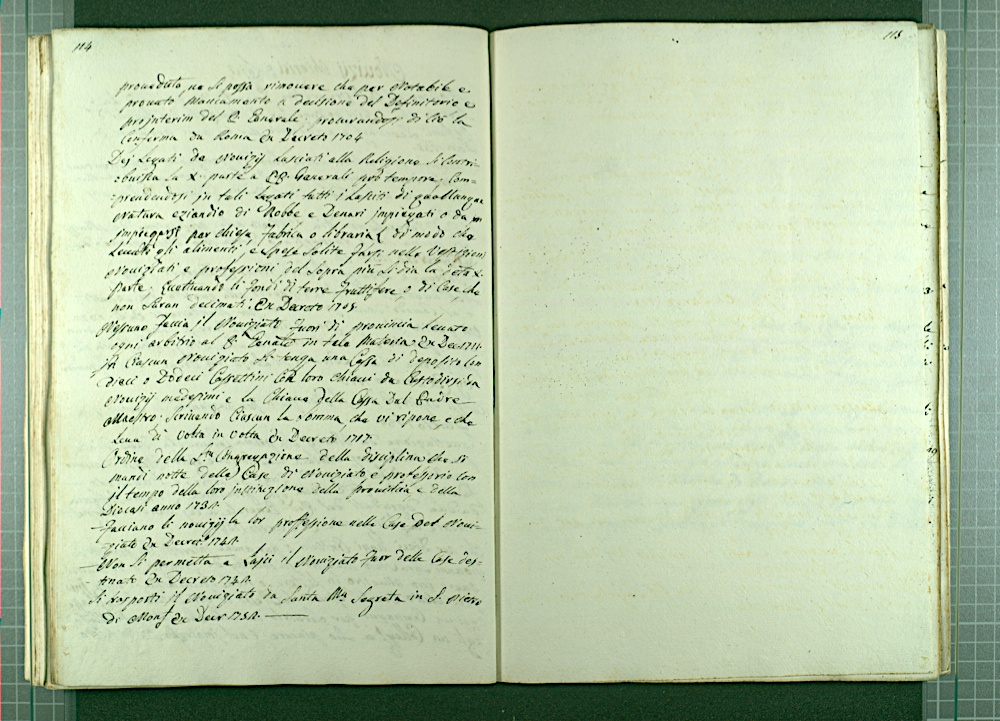 114
proueduto, ne si possa rimouere che per Notabile e
prouato mancamento a decisione del Definitorio e
projnterim del P. Generale, procurandosi di ciò la
Conferma da Roma Ex Decreto 1704
Dej Legati da Nouizij Lasciati alla Religione si Contri-
-buisca la X. parte a PP. Generali pro tempore, Com-
-prendendosi jn tali Legati tutti i Lasciti di qualunque
Natura eziandio di Robbe e Denari jmpiegati o da
jmpiegarsi per chiesa, Fabrica o libraria di modo che
Leuati gli alimenti, e spese solite farsi nelle Vestizioni
Nouiziati e professioni del sopra più si dia la detta X.
parte. Eccettuando li Fondi di terre Fruttifere, o di Case, che
non saran decimati. Ex Decreto 1705
Nessuno Faccia jl Nouiziato Fuori di prouincia Leuato
ogni arbitrio al P. Genale in tale Materia Ex Dec 1711.
jn Ciascun Nouiziato si tenga una Cassa di deposito Con
Dieci o Dodeci Cassettini Con loro chiaui da Custodirsi da
Nouizij medesimi e la Chiaue della Cassa dal Padre
Maestro. Scriuendo Ciascun la somma, che vi ripone, e che
Leua di volta in volta Ex Decreto 1717.
Ordine della S. Congregazione della disciplina che si
mandi notte delle Case di Nouiziato e professorio con
jl tempo della loro jnstituzione della prouincia e della
Diocesi anno 1731.
Facciano li nouizij la lor professione nelle Case del Noui-
ziato Ex Decreto 1741.
Non si permetta a Lajci il Nouiziato Fuor delle Case des-
tinate Ex Decreto 1741.
Si trasporti il Nouiziato da Santa Ma Segreta in S. Pietro
di Monf Ex Decr 1751.
115